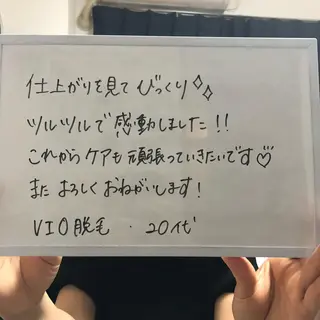 仕上がりを見てびっくり✧✧
ツルツルで感動しました!!
これからケアも頑張っていきたいです♡
またよろしくおねがいします!
VIO脱毛・20代